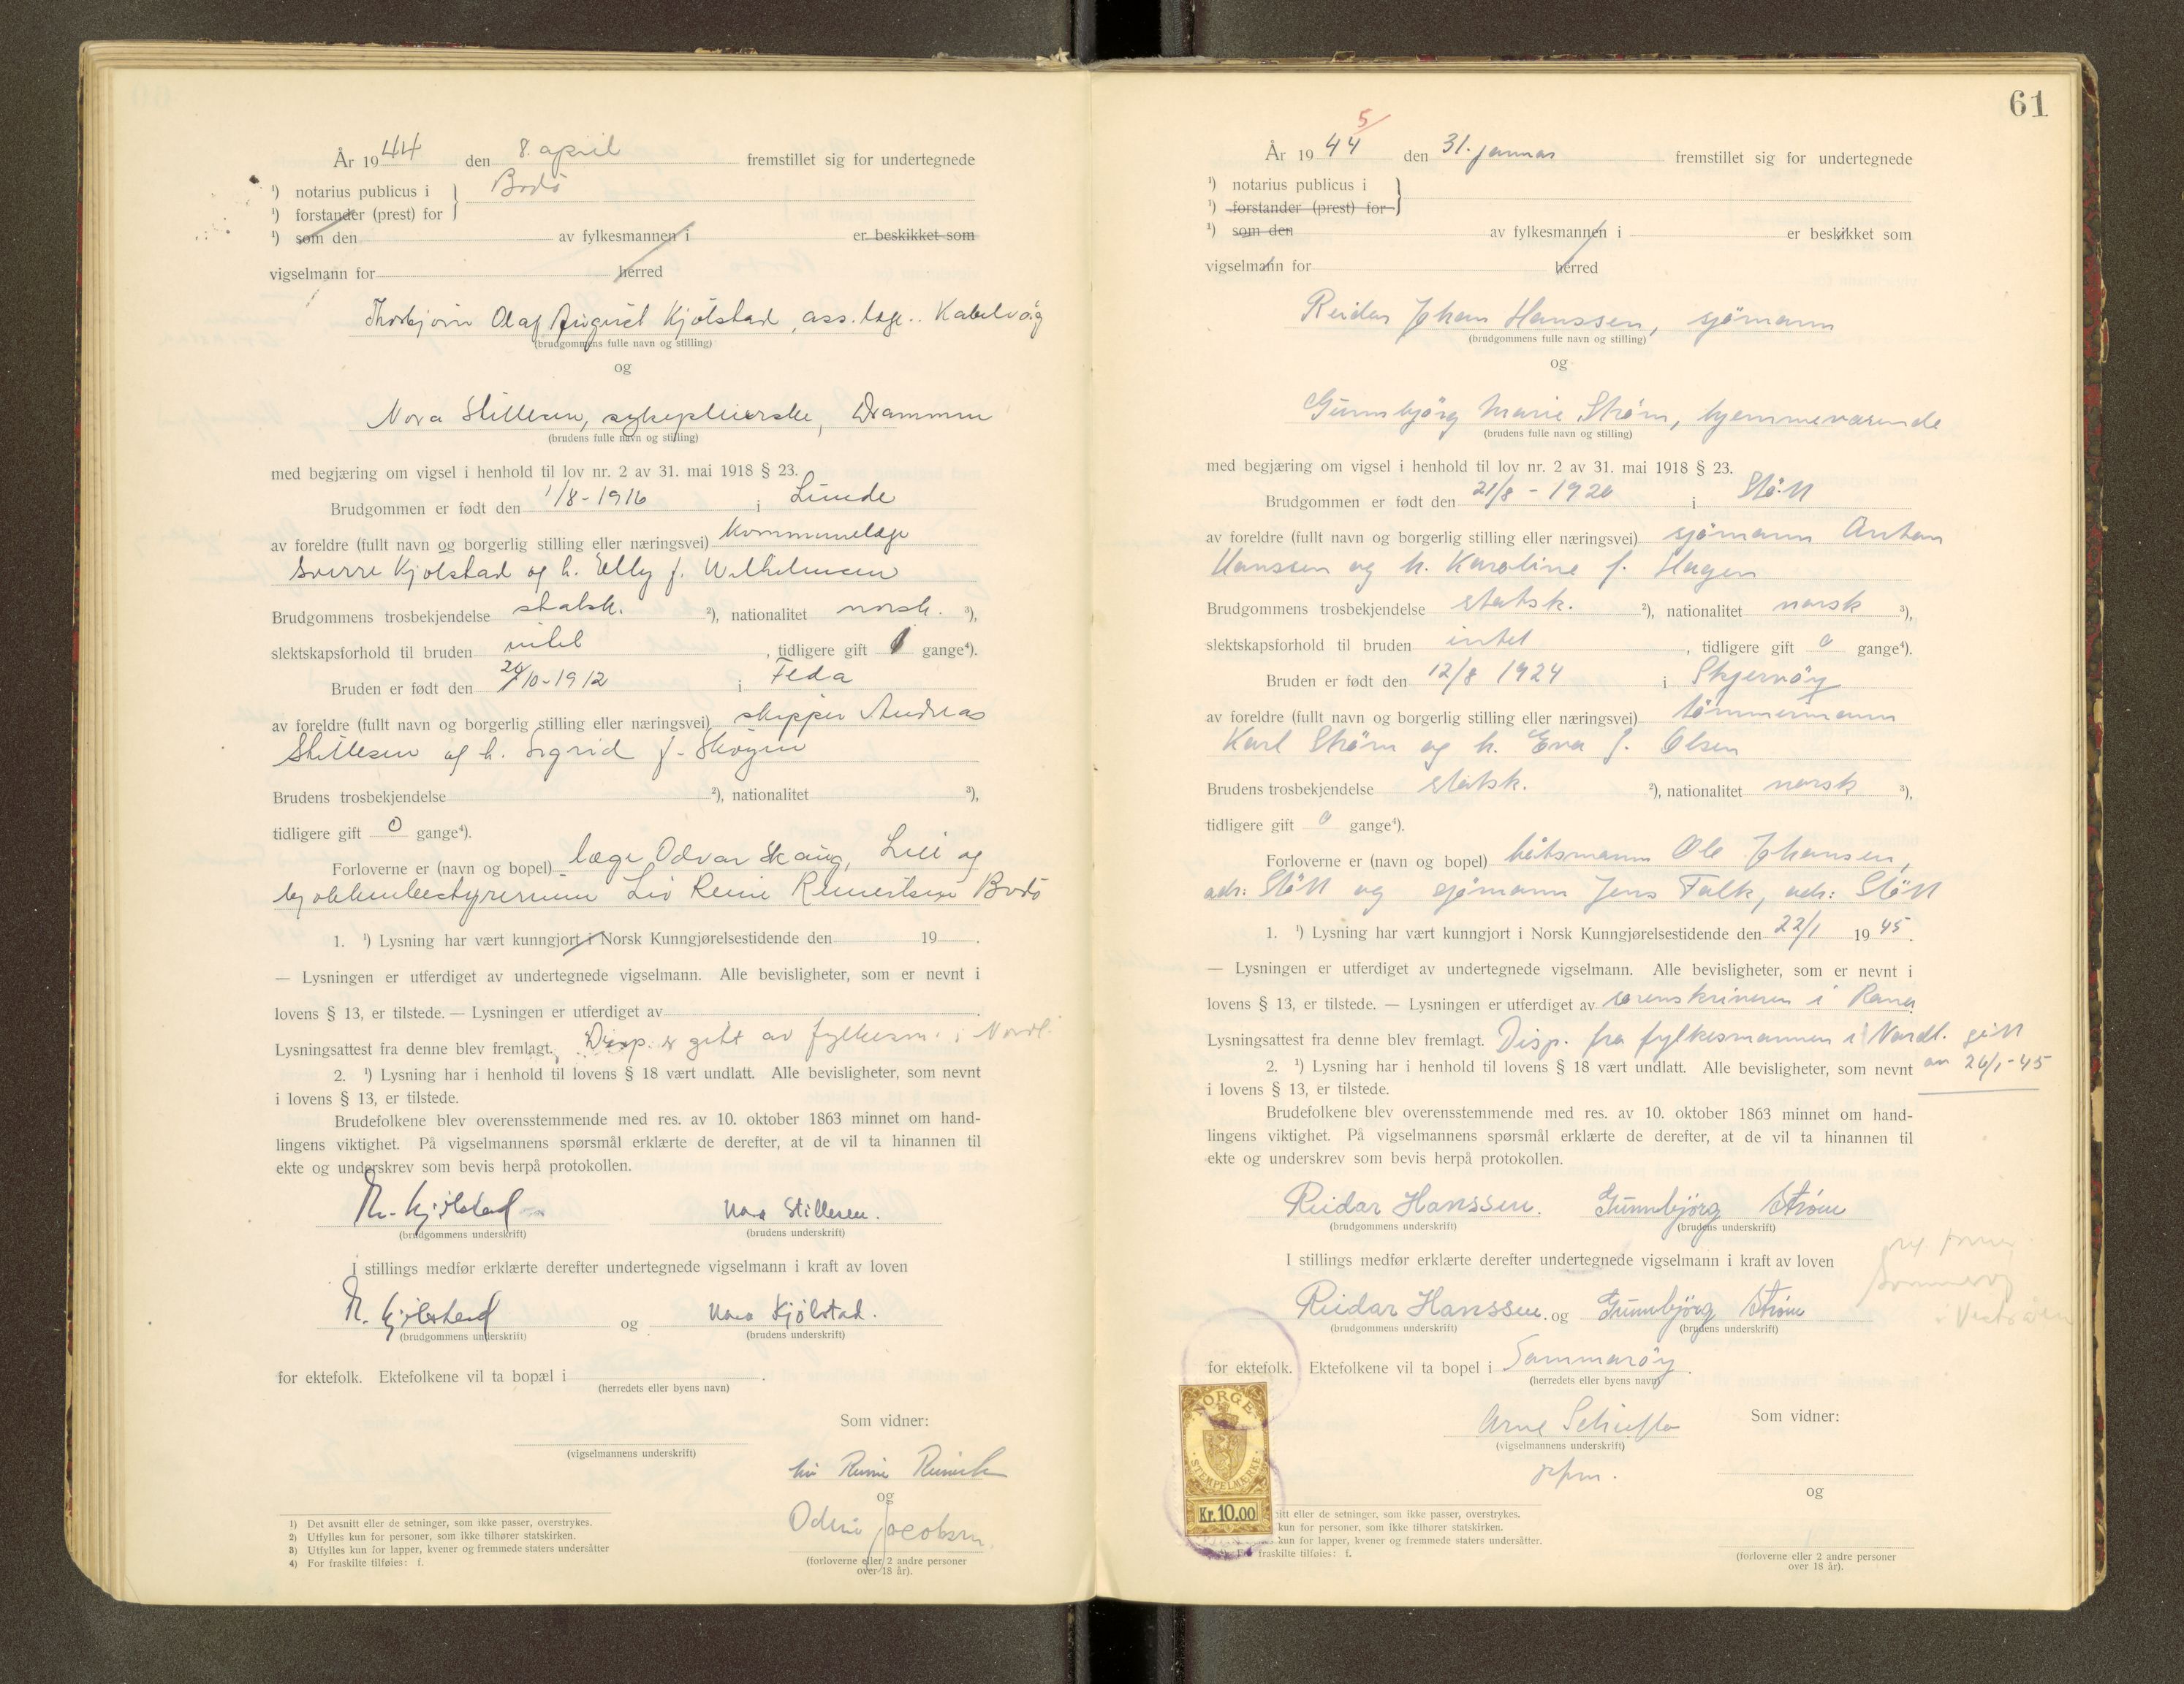 År 1944 den 8. april fremstillet sig for undertegnede
¹) notarius publicus i } Bodö
¹) forstander (prest) for
¹) som den av fylkesmannen i er beskikket som
vigselmann for herred
Thorbjörn Olaf August Kjölstad, ass. læge. Kabelvåg
(brudgommens fulle navn og stilling)
og
Nora Stillesen, sykepleierske, Drammen
(brudens fulle navn og stilling)
med begjæring om vigsel i henhold til lov nr. 2 av 31. mai 1918 § 23.
Brudgommen er født den 1/8-1916 i Lunde
av foreldre (fullt navn og borgerlig stilling eller næringsvei) kommunelæge
Sverre Kjölstad og h. Elly f. Wilhelmsen
Brudgommens trosbekjendelse statsk. ²), nationalitet norsk. ³),
slektskapsforhold til bruden intet , tidligere gift gange⁴).
Bruden er født den /10-1912 i Feda
av foreldre (fullt navn og borgerlig stilling eller næringsvei) skipper Andreas
Stillesen og h. Sigrid f.
Brudens trosbekjendelse ²), nationalitet ³),
tidligere gift 0 gange⁴).
Forloverne er (navn og bopel) læge Odvar Skaug, og
Liv Bodö
1. ¹) Lysning har vært kunngjort i Norsk Kunngjørelsestidende den 19 .
— Lysningen er utferdiget av undertegnede vigselmann. Alle bevisligheter, som er nevnt i
lovens § 13, er tilstede. — Lysningen er utferdiget av .
Lysningsattest fra denne blev fremlagt. Disp. er gitt av fylkesm. i Nordl.
2. ¹) Lysning har i henhold til lovens § 18 vært undlatt. Alle bevisligheter, som nevnt
i lovens § 13, er tilstede.
Brudefolkene blev overensstemmende med res. av 10. oktober 1863 minnet om hand-
lingens viktighet. På vigselmannens spørsmål erklærte de derefter, at de vil ta hinannen til
ekte og underskrev som bevis herpå protokollen.
Th. Kjölstad Nora Stillesen.
(brudgommens underskrift) (brudens underskrift)
I stillings medfør erklærte derefter undertegnede vigselmann i kraft av loven
Th. Kjölstad og Nora Kjölstad.
(brudgommens underskrift) (brudens underskrift)
for ektefolk. Ektefolkene vil ta bopæl i .
(herredets eller byens navn)
Som vidner:
(vigselmannens underskrift)
Liv
og
Jacobsen.
(forloverne eller 2 andre personer
over 18 år).
1) Det avsnitt eller de setninger, som ikke passer, overstrykes.
2) Utfylles kun for personer, som ikke tilhører statskirken.
3) Utfylles kun for lapper, kvener og fremmede staters undersåtter
4) For fraskilte tilføies: f.
61
5
År 1944 den 31. januar fremstillet sig for undertegnede
¹) notarius publicus i }
¹) forstander (prest) for
¹) som den av fylkesmannen i er beskikket som
vigselmann for herred
Reidar Johan Hanssen, sjömann
(brudgommens fulle navn og stilling)
og
Gunnbjörg Marie Ström, hjemmeværende
(brudens fulle navn og stilling)
med begjæring om vigsel i henhold til lov nr. 2 av 31. mai 1918 § 23.
Brudgommen er født den 21/8 - 1920 i Stött
av foreldre (fullt navn og borgerlig stilling eller næringsvei) sjömann Anton
Hanssen og h. Karoline f. Hagen
Brudgommens trosbekjendelse statsk. ²), nationalitet norsk ³),
slektskapsforhold til bruden intet , tidligere gift 0 gange⁴).
Bruden er født den 12/8 1924 i Skjervöy
av foreldre (fullt navn og borgerlig stilling eller næringsvei) tömmermann
Karl Ström og h. Eva f. Olsen
Brudens trosbekjendelse statsk. ²), nationalitet norsk ³),
tidligere gift 0 gange⁴).
Forloverne er (navn og bopel) båtsmann Ole Johansen,
adr: Stött og sjömann Jens Falk, adr: Stött
1. ¹) Lysning har vært kunngjort i Norsk Kunngjørelsestidende den 22/1 1945.
— Lysningen er utferdiget av undertegnede vigselmann. Alle bevisligheter, som er nevnt i
lovens § 13, er tilstede. — Lysningen er utferdiget av sorenskriveren i Rana.
Lysningsattest fra denne blev fremlagt. Disp. fra fylkesmannen i Nordl. gitt
2. ¹) Lysning har i henhold til lovens § 18 vært undlatt. Alle bevisligheter, som nevnt an 26/1-45
i lovens § 13, er tilstede.
Brudefolkene blev overensstemmende med res. av 10. oktober 1863 minnet om hand-
lingens viktighet. På vigselmannens spørsmål erklærte de derefter, at de vil ta hinannen til
ekte og underskrev som bevis herpå protokollen.
Reidar Hanssen. Gunnbjörg Ström
(brudgommens underskrift) (brudens underskrift)
I stillings medfør erklærte derefter undertegnede vigselmann i kraft av loven
Reidar Hanssen. og Gunnbjörg Ström
(brudgommens underskrift) (brudens underskrift)
for ektefolk. Ektefolkene vil ta bopel i Sommaröy.
(herredets eller byens navn)
Arne Som vidner:
(vigselmannens underskrift)
og
NORGE
STEMPELMÆRKE
Kr. 10.00
itt eller de setninger, som ikke passer, overstrykes.
kun for personer, som ikke tilhører statskirken.
kun for lapper, kvener og fremmede staters undersåtter.
fraskilte tilføies: f.
(forloverne eller 2 andre personer
over 18 år).